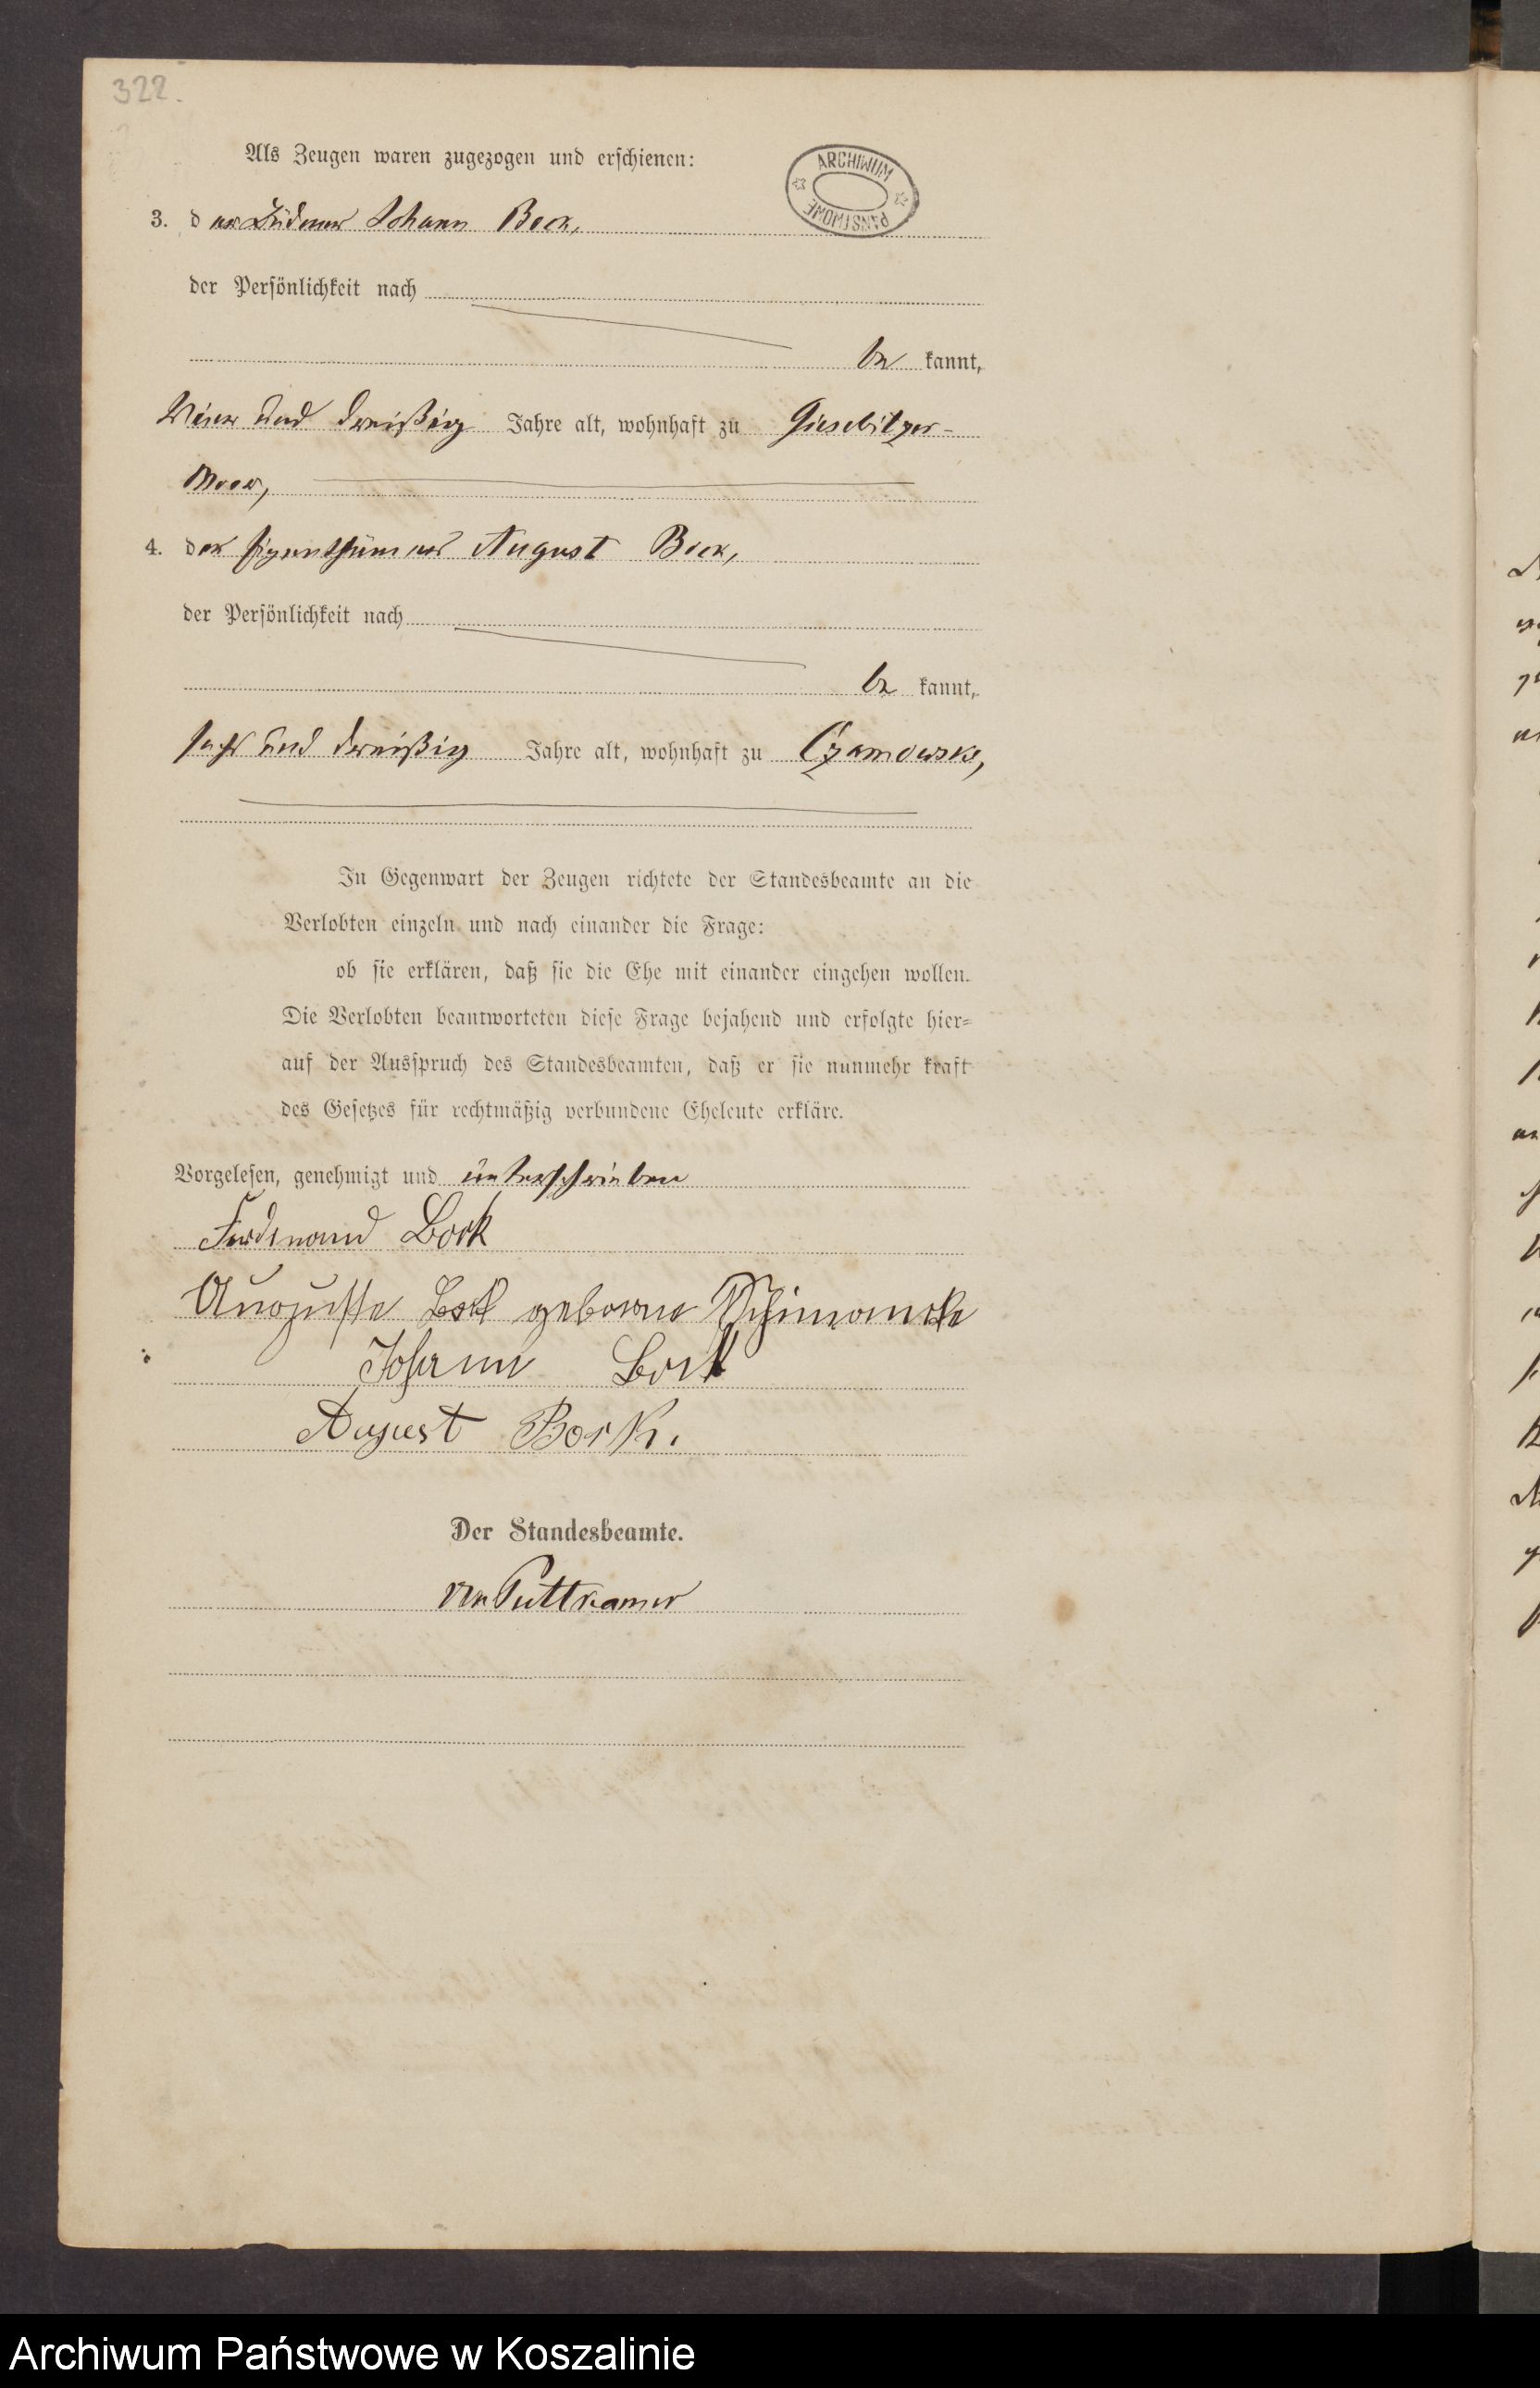 322.
Als Zeugen waren zugezogen und erschienen:
ARCHIWUM
PAŃSTWOWE
3. der Büdner Johann Bock,
der Persönlichkeit nach
be kannt,
vier und dreißig Jahre alt, wohnhaft zu Giesebitzer-
Moor,
4. der Eigenthümer August Bock,
der Persönlichkeit nach
be kannt,
sechs und dreißig Jahre alt, wohnhaft zu Czarnowske,
In Gegenwart der Zeugen richtete der Standesbeamte an die
Verlobten einzeln und nach einander die Frage:
ob sie erklären, daß sie die Ehe mit einander eingehen wollen.
Die Verlobten beantworteten diese Frage bejahend und erfolgte hier=
auf der Ausspruch des Standesbeamten, daß er sie nunmehr kraft
des Gesetzes für rechtmäßig verbundene Eheleute erkläre.
Vorgelesen, genehmigt und unterschrieben
Ferdinand Bock
Auguste Bock geborne
Johann Bock
August Bock.
Der Standesbeamte.
von Puttkamer
Archiwum Państwowe w Koszalinie